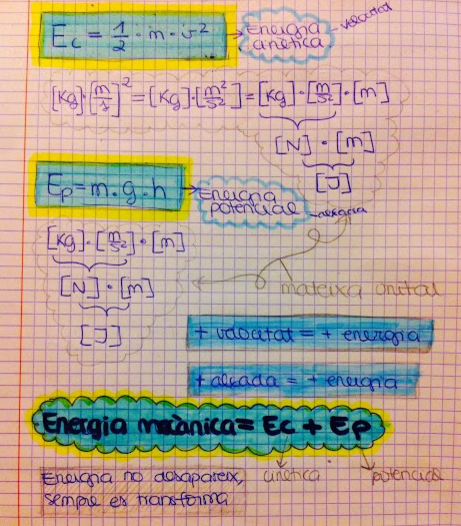 Ec = 1/2 · m · v² → Energia cinètica - velocitat
[Kg]·[m/s]² = [Kg]·[m²/s²] = [Kg]·[m/s²]·[m]
[N] · [m]
[J]
Ep = m · g · h → Energia potencial - alçada
[Kg]·[m/s²]·[m]
[N] · [m]
[J]
mateixa unitat
+ velocitat = + energia
+ alçada = + energia
Energia mecànica = Ec + Ep
cinètica potencial
Energia no desapareix,
sempre es transforma